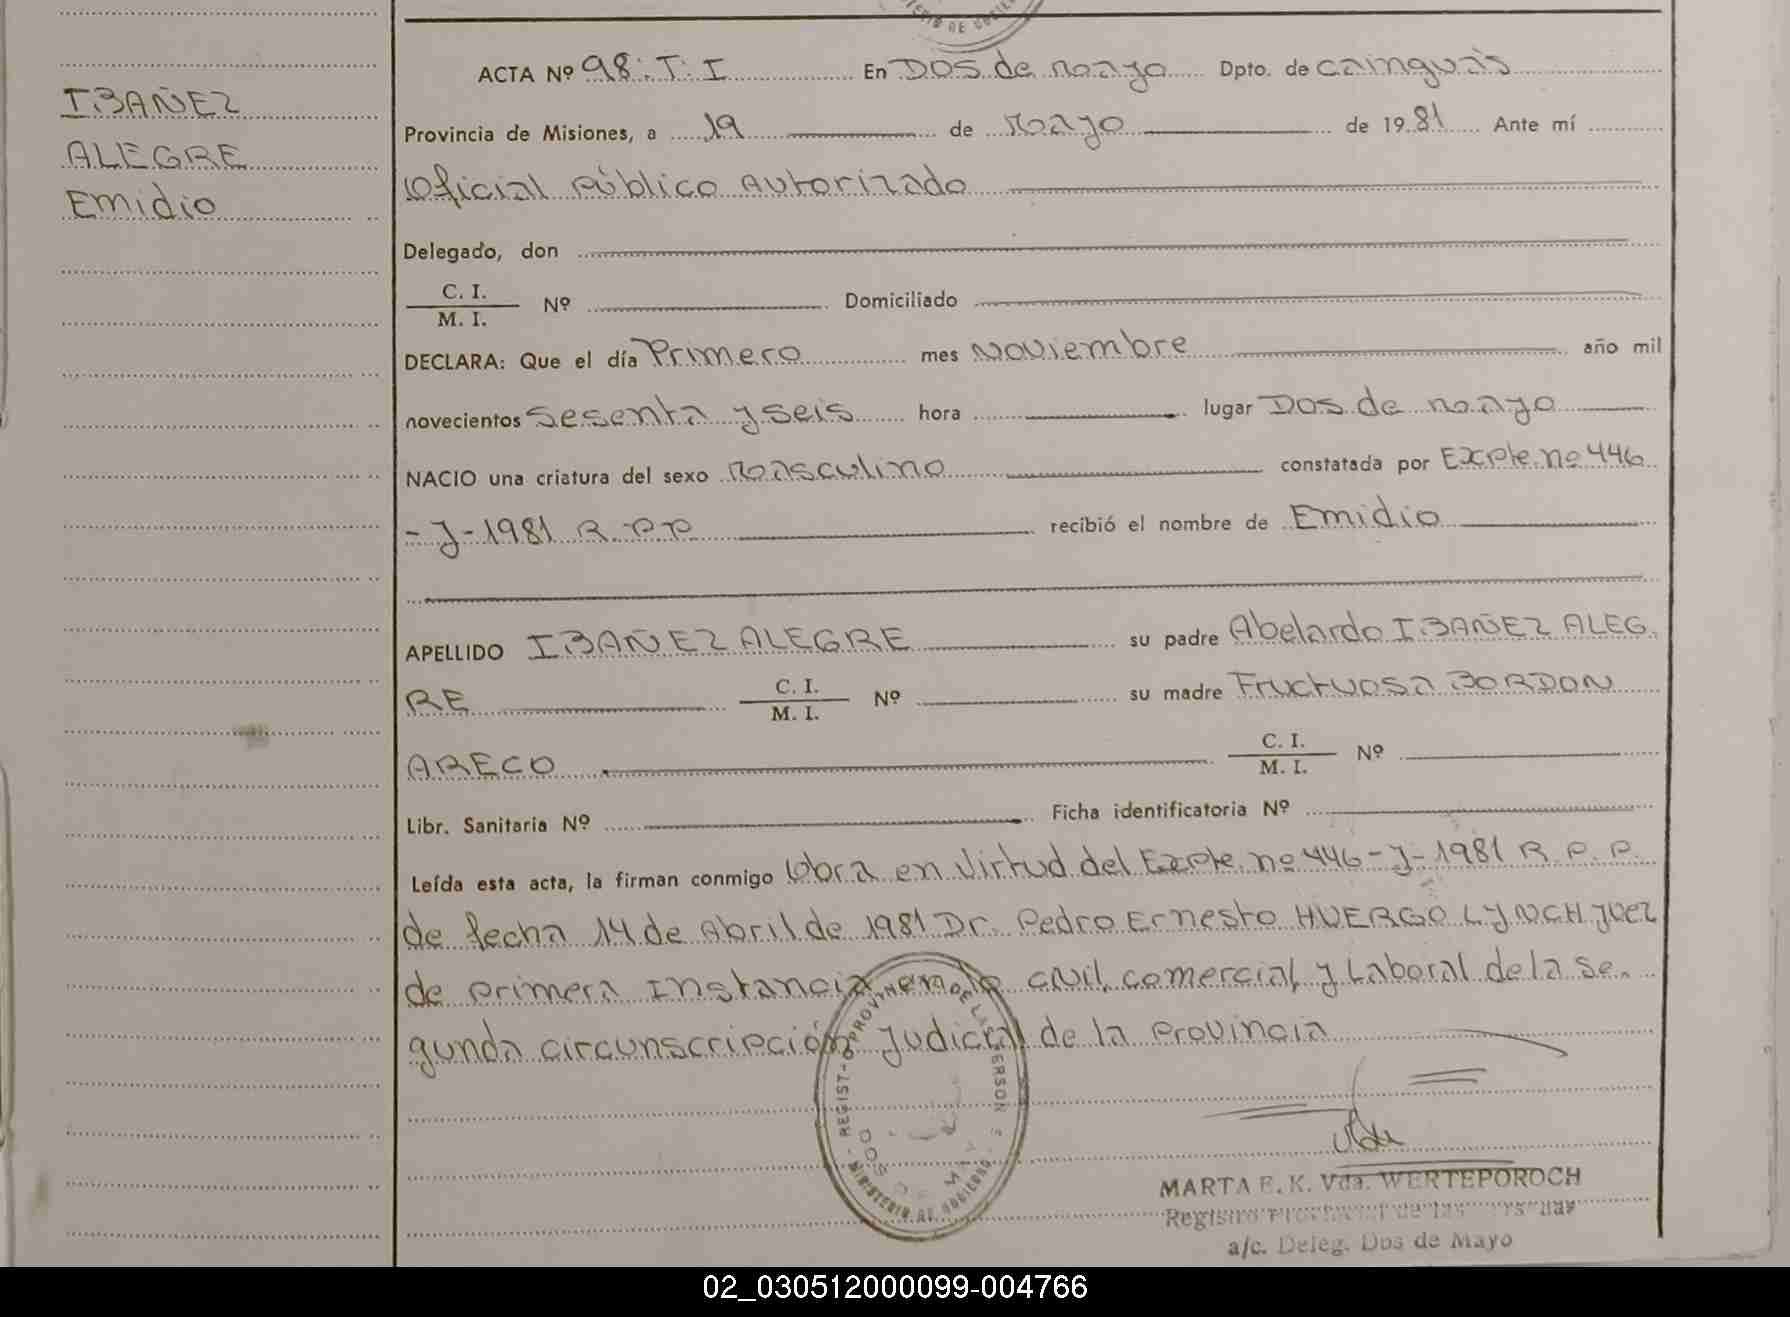 IBAÑEZ
ALEGRE
Emidio
ACTA Nº 98. T. I En Dos de mayo Dpto. de cainguàs
Provincia de Misiones, a 19 de Mayo de 1981 Ante mí
Oficial Público Autorizado
Delegado, don
C. I.
M. I. Nº Domiciliado
DECLARA: Que el día Primero mes Noviembre año mil
novecientos sesenta y seis hora lugar Dos de mayo
NACIO una criatura del sexo Masculino constatada por Expte. nº 446
- J - 1981 R. P. P. recibió el nombre de Emidio
APELLIDO IBAÑEZ ALEGRE su padre Abelardo IBAÑEZ ALEG.
RE C. I. M. I. Nº su madre Fructuosa BORDON
ARECO C. I. M. I. Nº
Libr. Sanitaria Nº Ficha identificatoria Nº
Leída esta acta, la firman conmigo Obra en virtud del Expte. nº 446 - J - 1981 R. P. P.
de fecha 14 de Abril de 1981 Dr. Pedro Ernesto HUERGO LYNCH Juez
de primera Instancia en lo civil, comercial, y Laboral de la se.
gunda circunscripción Judicial de la Provincia
DOS DE MAYO
MINISTERIO DE GOBIERNO
MARTA E. K. Vda. WERTEPOROCH
Registro Provincial de las
a/c. Deleg. Dos de Mayo
02_030512000099-004766